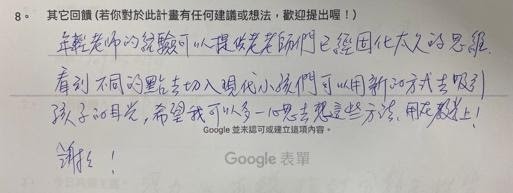 8。 其它回饋 (若你對於此計畫有任何建議或想法，歡迎提出喔！)
年輕老師的經驗可以提供老老師們已經固化太久的思維.
看到不同的點去切入現代小孩們可以用新的方式去吸引
孩子的目光，希望我可以多一心思去想這些方法、用在教學上！
Google 並未認可或建立這項內容。
謝謝！
Google 表單